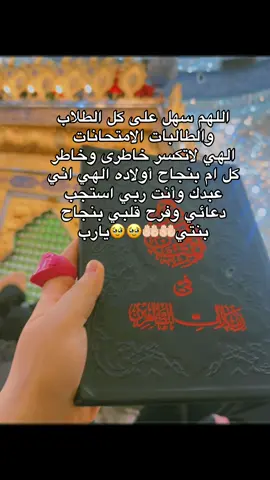 اللهم سهل على كل الطلاب
والطالبات الامتحانات
الهي لاتكسر خاطري وخاطر
كل ام بنجاح أولاده الهي اني
عبدك وأنت ربي استجب
دعائي وفرح قلبي بنجاح
بنتي🤲🏻🤲🏻🥹🥹يارب
في